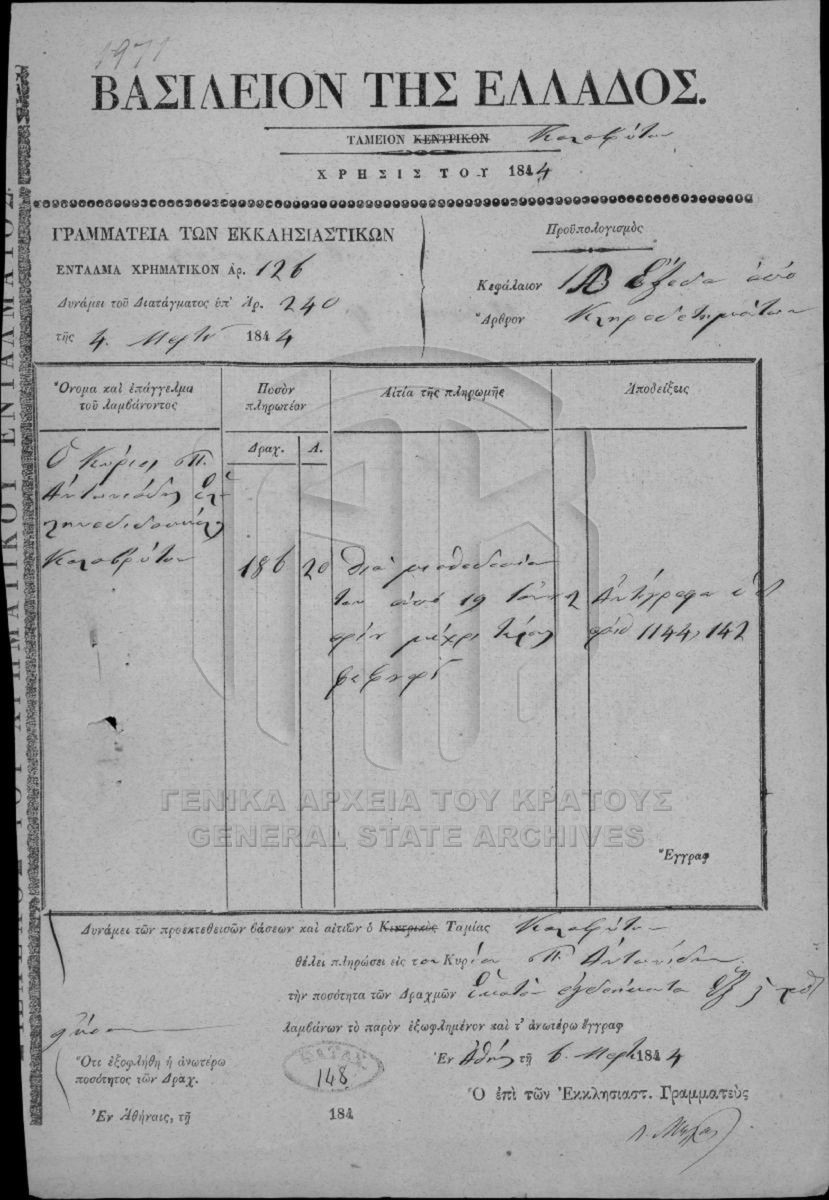 1971
ΒΑΣΙΛΕΙΟΝ ΤΗΣ ΕΛΛΑΔΟΣ.
ΤΑΜΕΙΟΝ ΚΕΝΤΡΙΚΟΝ Καλαβρύτων
ΧΡΗΣΙΣ ΤΟΥ 1844
ΓΡΑΜΜΑΤΕΙΑ ΤΩΝ ΕΚΚΛΗΣΙΑΣΤΙΚΩΝ
ΕΝΤΑΛΜΑ ΧΡΗΜΑΤΙΚΟΝ Ἀρ. 126
Δυνάμει τοῦ Διατάγματος ὑπ' Ἀρ. 240
τῆς 4 Μαρτ 1844
Προϋπολογισμὸς
Κεφάλαιον Ἔξοδα ἀπὸ
Ἄρθρον Κληροδοτημάτων
Ὄνομα καὶ ἐπάγγελμα
τοῦ λαμβάνοντος
Ποσὸν
πληρωτέον
Αἰτία τῆς πληρωμῆς
Ἀποδείξεις
Δραχ. Λ.
Ὁ Κύριος Π.
Ἀντωνιάδης Ἑλ
ληνοδιδάσκαλος
Καλαβρύτων
186 20
Διὰ μισθοδοσίαν
του ἀπὸ 19 
μέχρι τέλους
Ἀντίγραφα
1144, 142
Ἔγγραφ
Δυνάμει τῶν προεκτεθεισῶν βάσεων καὶ αἰτιῶν ὁ Κεντρικὸς Ταμίας Καλαβρύτων
θέλει πληρώσει εἰς τον Κυρίον Π. Ἀντωνιάδην
τὴν ποσότητα τῶν Δραχμῶν Ἑκατὸν ὀγδοήκοντα ἓξ
λαμβάνων τὸ παρὸν ἐξωφλημένον καὶ τ' ἀνωτέρω ἔγγραφ
Ὅτι ἐξοφλήθη ἡ ἀνωτέρω
ποσότητος τῶν Δραχ.
Ἐν Ἀθήναις, τῇ 184
148
Ἐν Ἀθήν τῇ 6 Μαρτ 1844
Ὁ ἐπὶ τῶν Ἐκκλησιαστ. Γραμματεὺς
ΓΕΝΙΚΑ ΑΡΧΕΙΑ ΤΟΥ ΚΡΑΤΟΥΣ
GENERAL STATE ARCHIVES